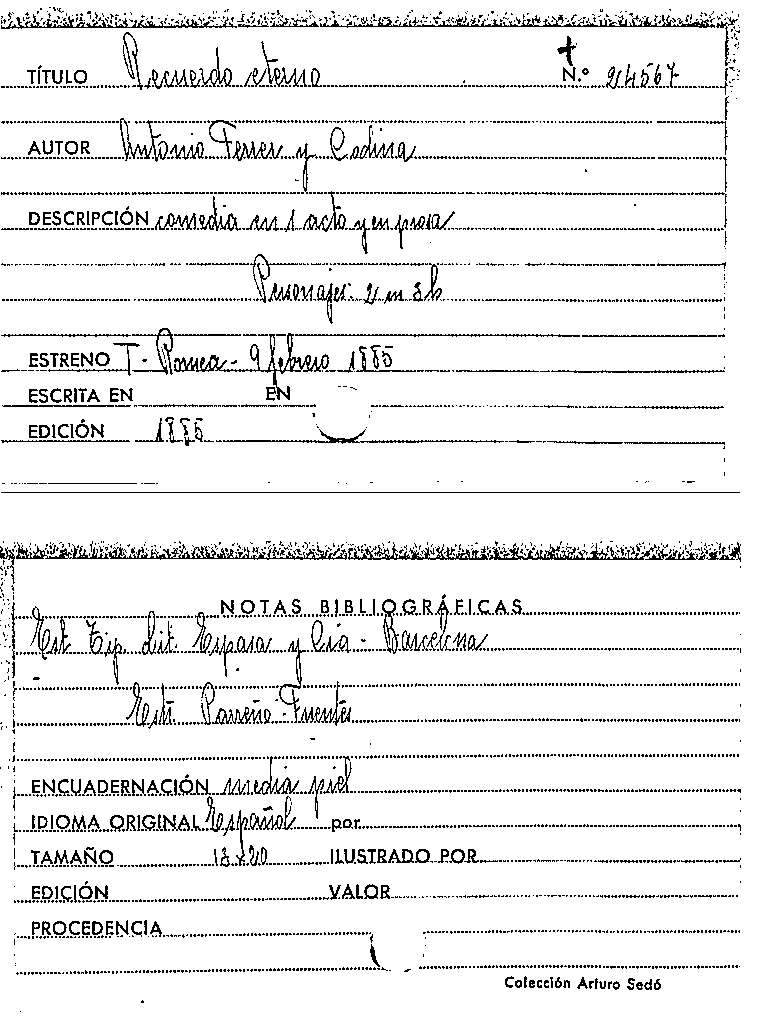 TÍTULO Recuerdo eterno N.º 24567
AUTOR Antonio Ferrer y Codina
DESCRIPCIÓN comedia en 1 acto y en prosa
Personajes: 2 m 3 h
ESTRENO T - Romea - 9 febrero 1885
ESCRITA EN EN
EDICIÓN 1885
NOTAS BIBLIOGRÁFICAS
Est. Tip. Lit. Espasa y Cía - Barcelona
Estr. Parreño-Fuentes
ENCUADERNACIÓN media piel
IDIOMA ORIGINAL Español por
TAMAÑO 13x20 ILUSTRADO POR
EDICIÓN VALOR
PROCEDENCIA
Colección Arturo Sedó